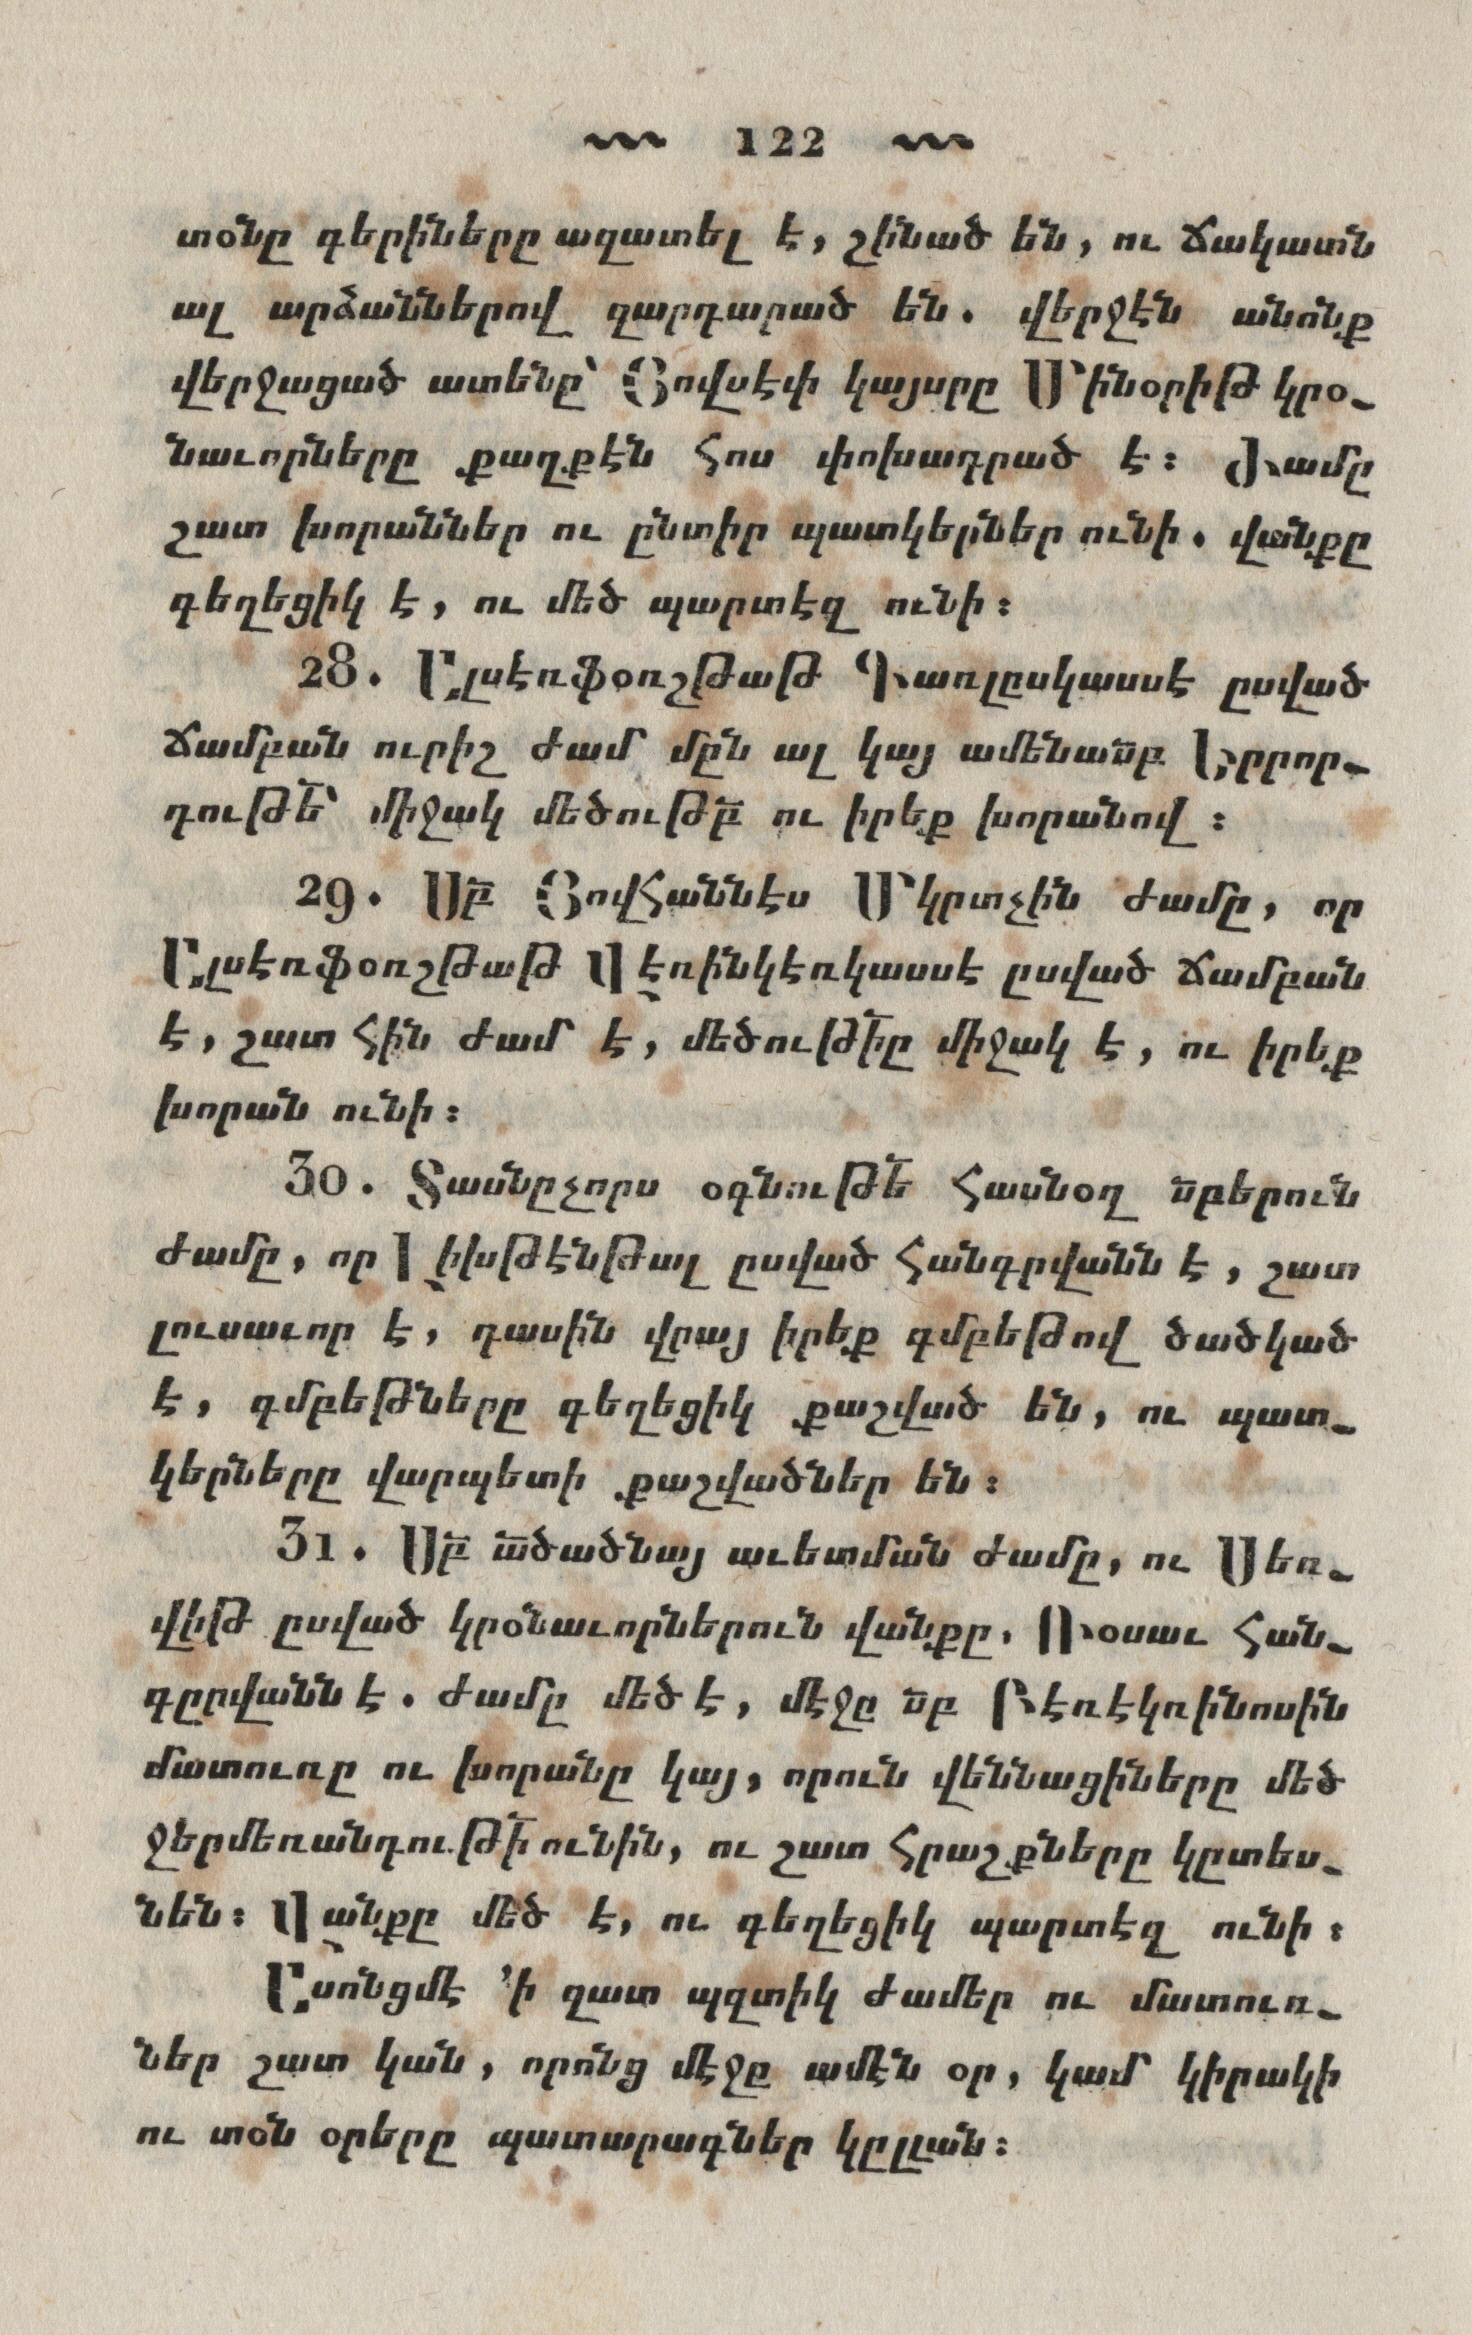 122
տօնը գերիները ազատել է, շինած են, ու ճակատն
ալ արձաններով զարդարած են. վերջէն անոնք
վերջացած ատենը՝ Յովսէփ կայսրը Մինօրիթ կրօ-
նաւորները քաղքէն հոս փոխադրած է։ Ժամը
շատ խորաններ ու ընտիր պատկերներ ունի. վանքը
գեղեցիկ է, ու մեծ պարտէզ ունի։
28. Ալսէռֆօռշթաթ Գառլըսկասսէ ըսված
ճամբան ուրիշ ժամ մըն ալ կայ ամենասբ Երրոր-
դութե՝ միջակ մեծութբ ու իրեք խորանով։
29. Սբ Յովհաննէս Մկրտչին ժամը, որ
Ալսէռֆօռշթաթ Վէռինկէռկասսէ ըսված ճամբան
է, շատ հին ժամ է, մեծութիը միջակ է, ու իրեք
խորան ունի։
30. Տասնըչորս օգնութե հասնօղ սբերուն
ժամը, որ Լիխթէնթալ ըսված հանգրվանն է, շատ
լուսաւոր է, դասին վրայ իրեք գմբեթով ծածկած
է, գմբեթները գեղեցիկ քաշված են, ու պատ-
կերները վարպետի քաշվածներ են։
31. Սբ ածածնայ աւետման ժամը, ու Սեռ-
վիթ ըսված կրօնաւորներուն վանքը, Ռօսաւ հան-
գըրվանն է. ժամը մեծ է, մէջը սբ Բէռէկռինոսին
մատուռը ու խորանը կայ, որուն վեննացիները մեծ
ջերմեռանդութի ունին, ու շատ հրաշքները կըտես-
նեն։ Վանքը մեծ է, ու գեղեցիկ պարտէզ ունի։
Ասոնցմէ ՚ի զատ պզտիկ ժամեր ու մատուռ-
ներ շատ կան, որոնց մէջը ամէն օր, կամ կիրակի
ու տօն օրերը պատարագներ կըլլան։